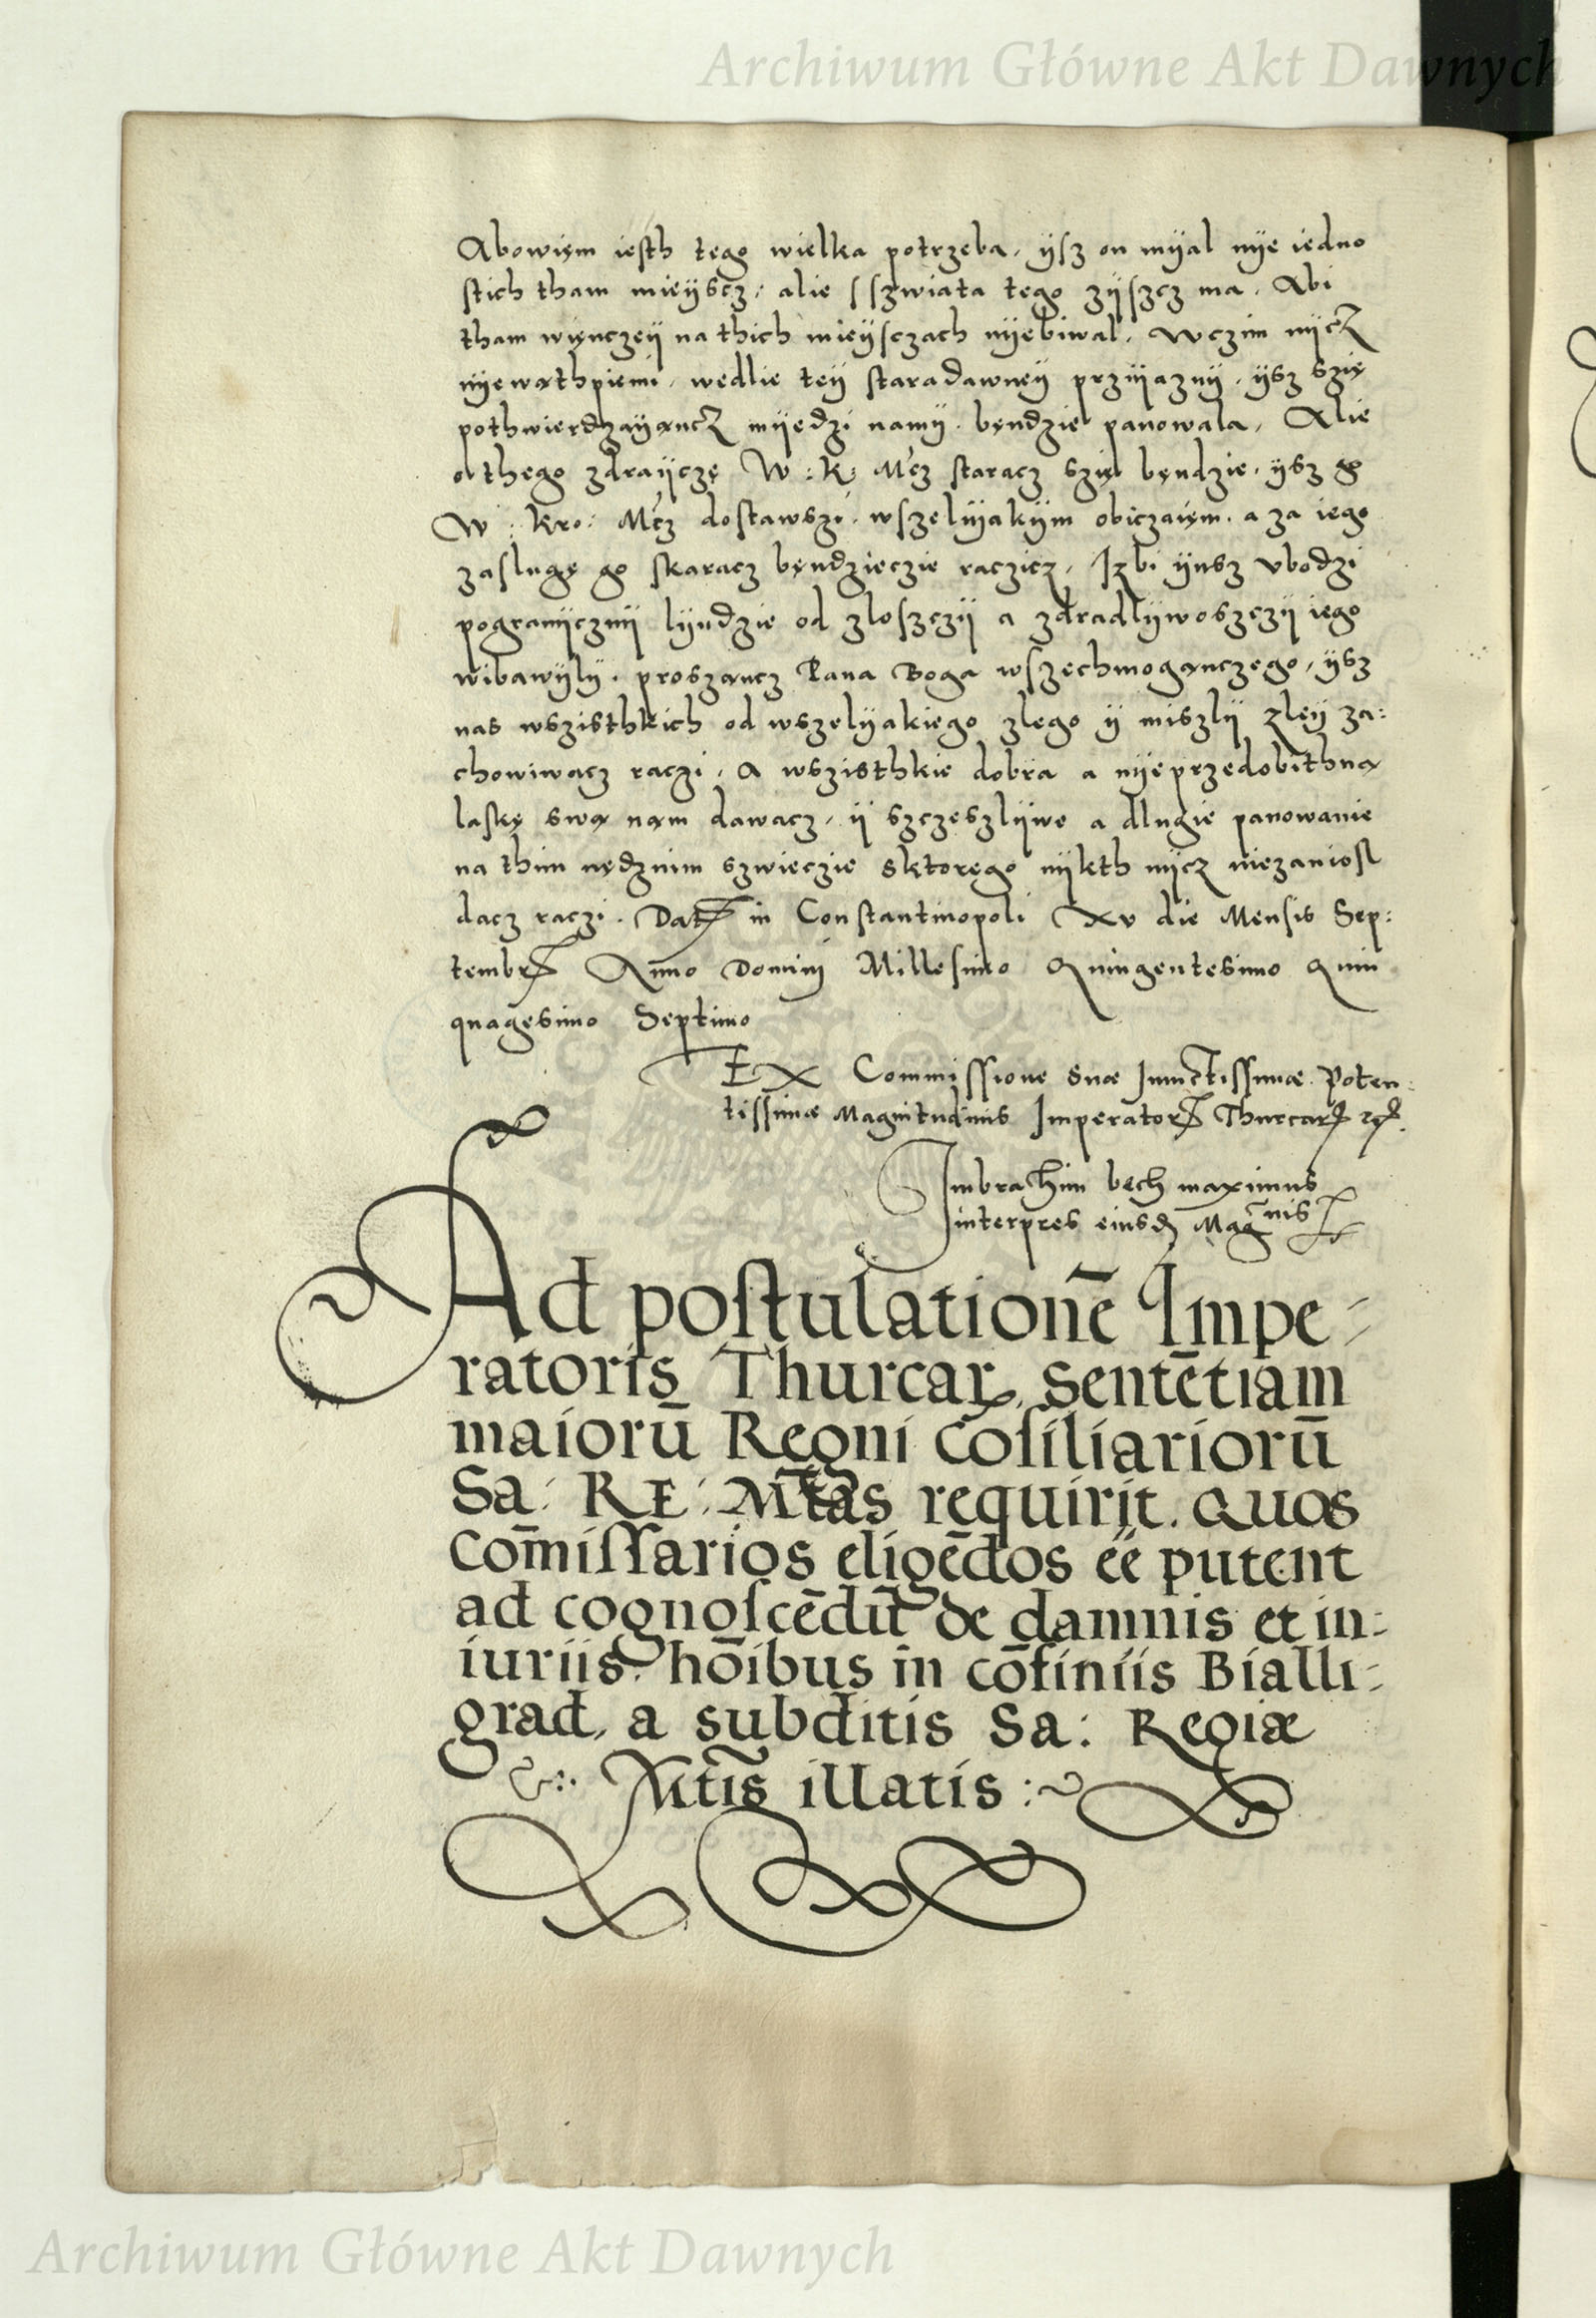 Archiwum Główne Akt Dawnych
Abowięm iesth tego wielka potrzeba, ÿsz on mÿal nÿe iedno
stich tham mieÿscz, alie s szwiata tego zÿszcz ma. Abi
tham więnczeÿ na thich mieÿsczach nÿebiwal. Wczim nÿcz
nÿewąthpiemi, wedlie teÿ staradawneÿ przÿiaznÿ, ÿsz szię
pothwierdzaÿąncz mÿedzi namÿ będzie panowala, Alie
othego zdraÿczę W: K: Mcz staracz szię będzie, ÿsz go
W: Kro: Mcz dostawszi, wszelÿakÿm obiczaięm, a za iego
zaslugę go skaracz bęndzieczie raczicz, Izbi ÿnsz vbodzi
pogranÿcznÿ lÿudzie od zloszczÿ a zdradlÿwoszczÿ iego
wibawÿlÿ. proszącz Pana Boga wszechmogąnczego, ÿsz
nas wszisthkich od wszelÿakiego zlego ÿ miszlÿ zleÿ za:
chowiwacz raczi, a wszisthkie dobra a nÿeprzedobithną
laskę swą nąm dawacz, ÿ szczeszlÿwe a dlugie panowanie
na thim nędznim szwieczie sktorego nÿkth nÿcz niezaniosl
dacz raczi. Dat̄ in Constantinopoli Xv die Mensis Sep:
tembr̄ Anno Dominj Millesimo Quingentesimo Quin
quagesimo Septimo
EX Commissione suæ Inuictissimæ Poten:
tissimæ Magnitudinis Imperator̄ Thurcarꝝ
Imbrahim bech maximus
interpres eiusdꝫ Magnis
Ad postulationē Impe-
ratoris Thurcarꝝ, sentētiam
maiorū Regni cōsiliariorū
Sa: RE: Mtas requirit. Quos
com̄issarios eligēdos eē putent
ad cognoscēdū de damnis et in:
iuriis hōibus in cōfiniis Bialli-
grad, a subditis Sa: Regiæ
Mtis illatis:
Archiwum Główne Akt Dawnych